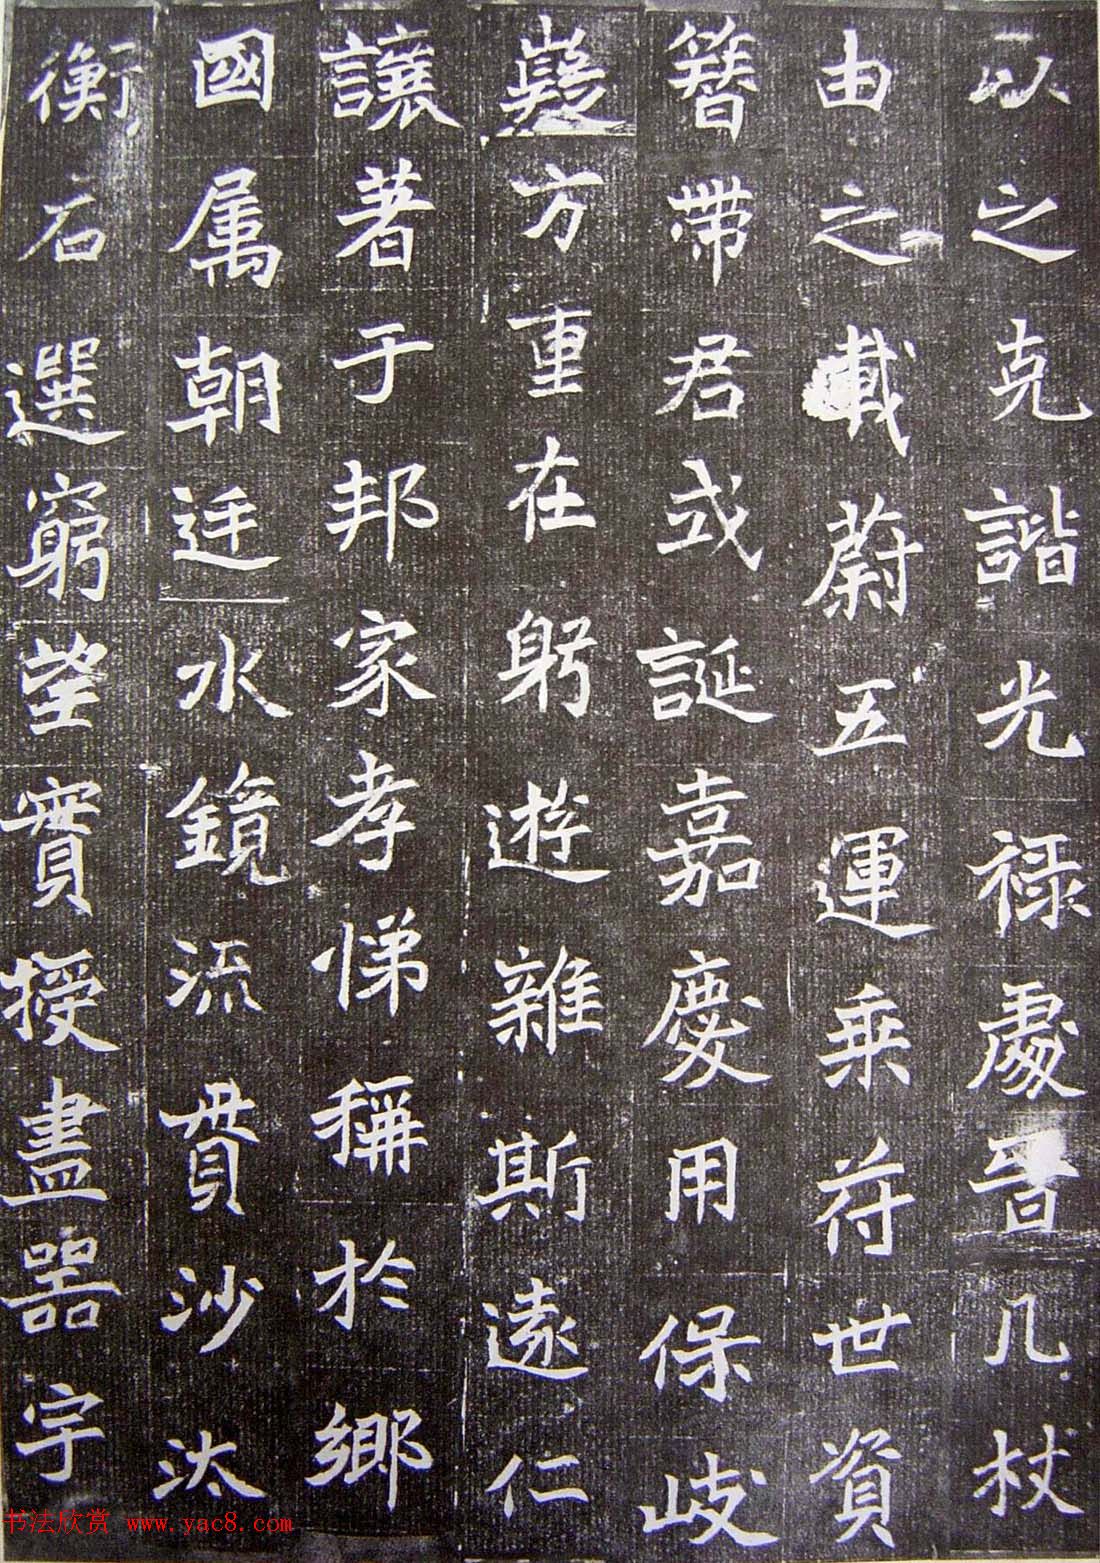 以之克諧光禄處晉几杖
由之載蔚五運乗苻世資
簪帶君或誕嘉慶用保岐
嶷方重在躬遊雜斯遠仁
譲著于邦家孝悌稱於鄉
國属朝廷水鏡流貫沙汰
衡石選窮望實授盡器宇
书法欣赏 www.yac8.com